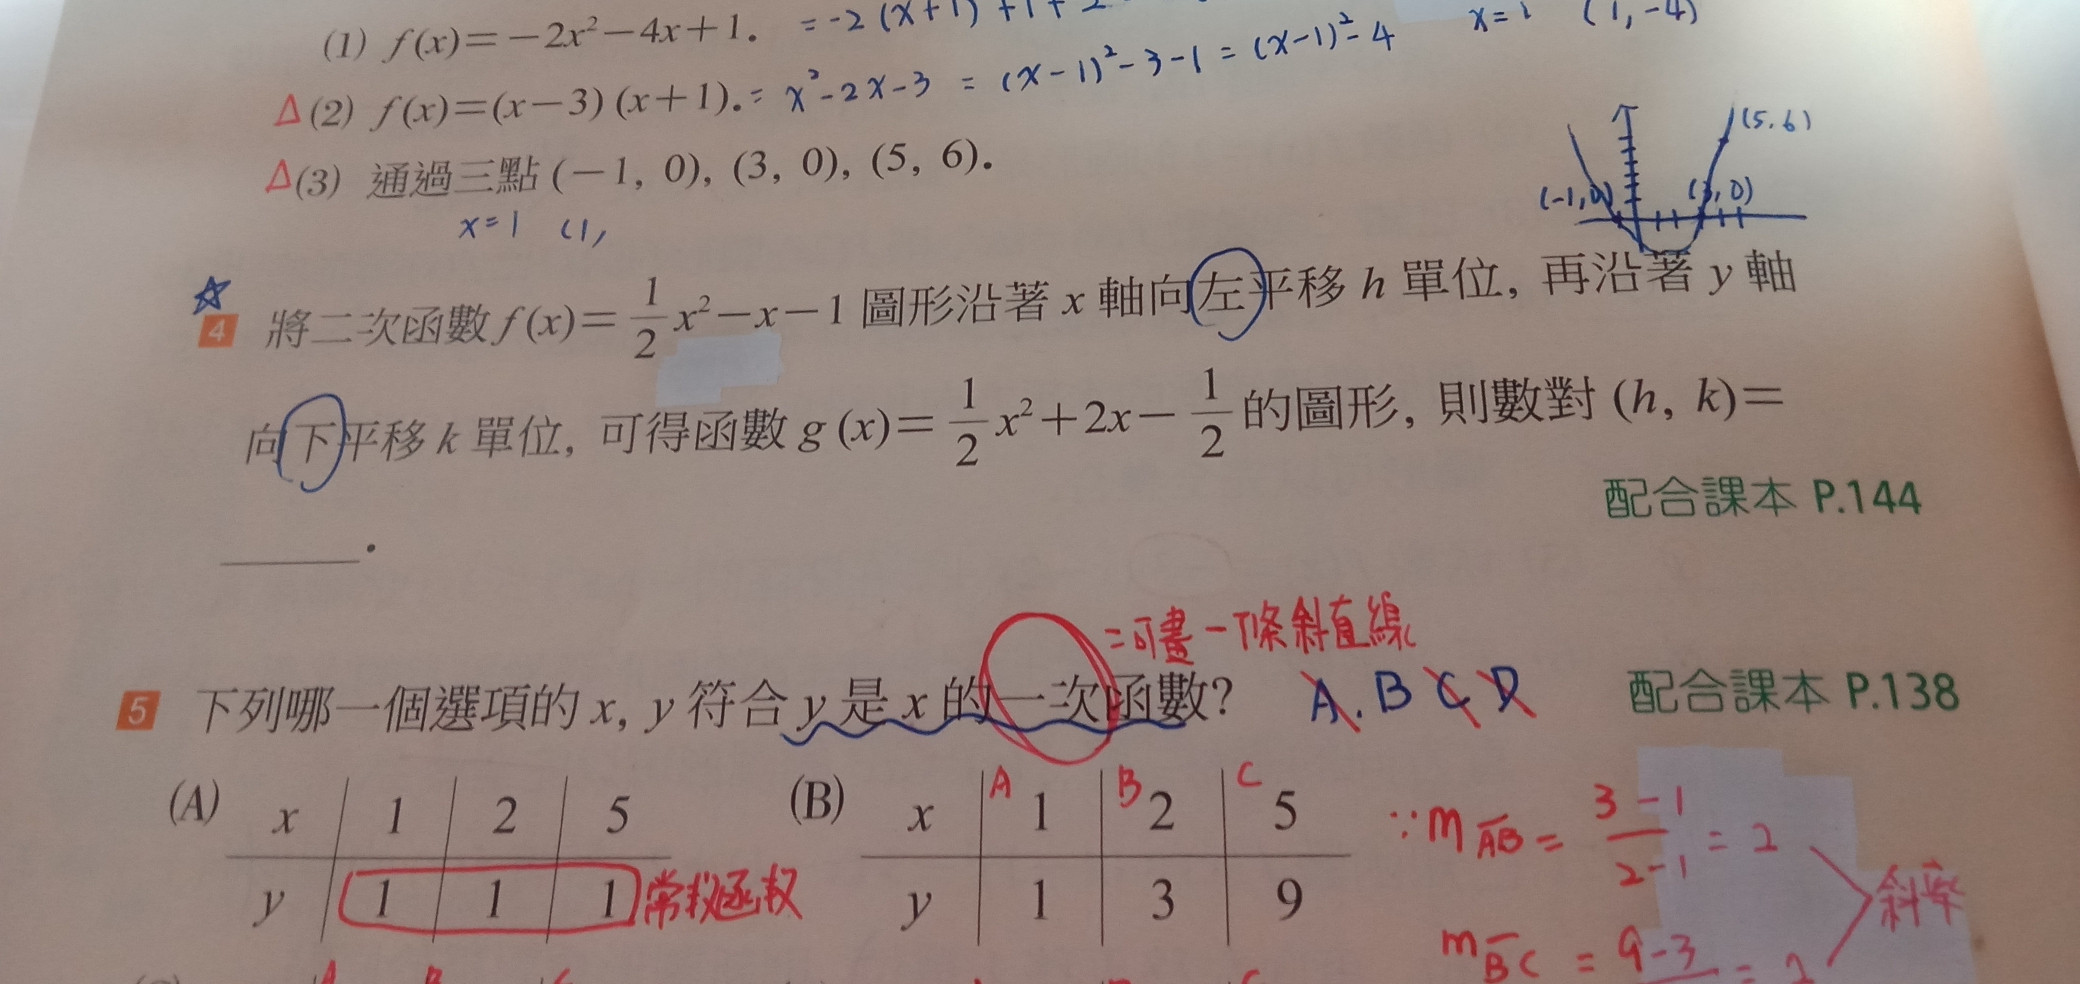 (1) f(x)=-2x²-4x+1. = -2(x+1)²+1+2
x=1 (1,-4)
△(2) f(x)=(x-3)(x+1). = x²-2x-3 = (x-1)²-3-1 = (x-1)²-4
△(3) 通過三點(-1, 0), (3, 0), (5, 6).
x=1 (1,
(5.6)
(-1,0) (3,0)
☆
4 將二次函數f(x)=1/2x²-x-1圖形沿著x軸向左平移h單位, 再沿著y軸
向下平移k單位, 可得函數g(x)=1/2x²+2x-1/2的圖形, 則數對(h, k)=
配合課本 P.144
______.
=可畫一條斜直線
5 下列哪一個選項的x, y符合y是x的一次函數? A. B C D 配合課本 P.138
(A) x 1 2 5
y 1 1 1 常数函数
(B) x A 1 B 2 C 5
y 1 3 9
∵m AB = 3-1/2-1 = 2
斜率
m BC = 9-3
A B C